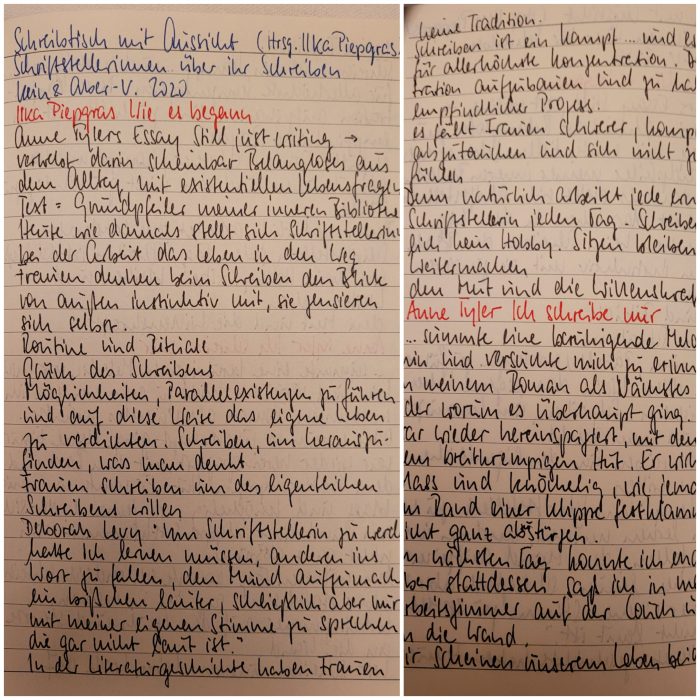 Schreibtisch mit Aussicht (Hrsg. Ilka Piepgras.
Schriftstellerinnen über ihr Schreiben
kein & Aber-V. 2020
Ilka Piepgras Wie es begann
Anne Tylers Essay Still just writing →
verwebt darin scheinbar Belangloses aus
dem Alltag mit existentiellen Lebensfragen
Text = Grundpfeiler meiner inneren Bibliothe
Heute wie damals stellt sich Schriftstellerinn
bei der Arbeit das Leben in den Weg
Frauen denken beim Schreiben den Blick
von außen instinktiv mit, sie zensieren
sich selbst.
Routine und Rituale
Glück des Schreibens
Möglichkeiten, Parallelexistenzen zu führen
und auf diese Weise das eigene Leben
zu verdichten. Schreiben, um herauszu-
finden, was man denkt
Frauen schreiben um des eigentlichen
Schreibens willen
Deborah Levy: Um Schriftstellerin zu werd
hatte ich lernen müssen, anderen ins
Wort zu fallen, den Mund aufzumach
ein bißchen lauter, schließlich aber nur
mit meiner eigenen Stimme zu sprechen
die gar nicht laut ist."
In der Literaturgeschichte haben Frauen
keine Tradition.
Schreiben ist ein Kampf ... und es
für allerhöchste Konzentration. D
tration aufzubauen und zu ha
empfindlicher Prozess.
es fällt Frauen schwerer, komp
abzutauchen und sich nicht z
fühlen
Denn natürlich arbeitet jede ern
Schriftstellerin jeden Tag. Schreibe
sich kein Hobby. Sitzen bleiben
Weitermachen
den Mut und die Willenskraf
Anne Tyler Ich schreibe nur
... summte eine beruhigende Melo
hin und versuchte mich zu erinn
n meinem Roman als Nächstes
der worum es überhaupt ging.
ar wieder hereinspaziert, mit dem
em breitkrempigen Hut. Er wirk
lass und knöchelig, wie jema
m Rand einer Klippe festklamm
icht ganz abstürzen.
m nächsten Tag konnte ich end
ber stattdessen saß ich in m
rbeitszimmer auf der Couch u
n die Wand.
ir scheinen unserem Leben beid